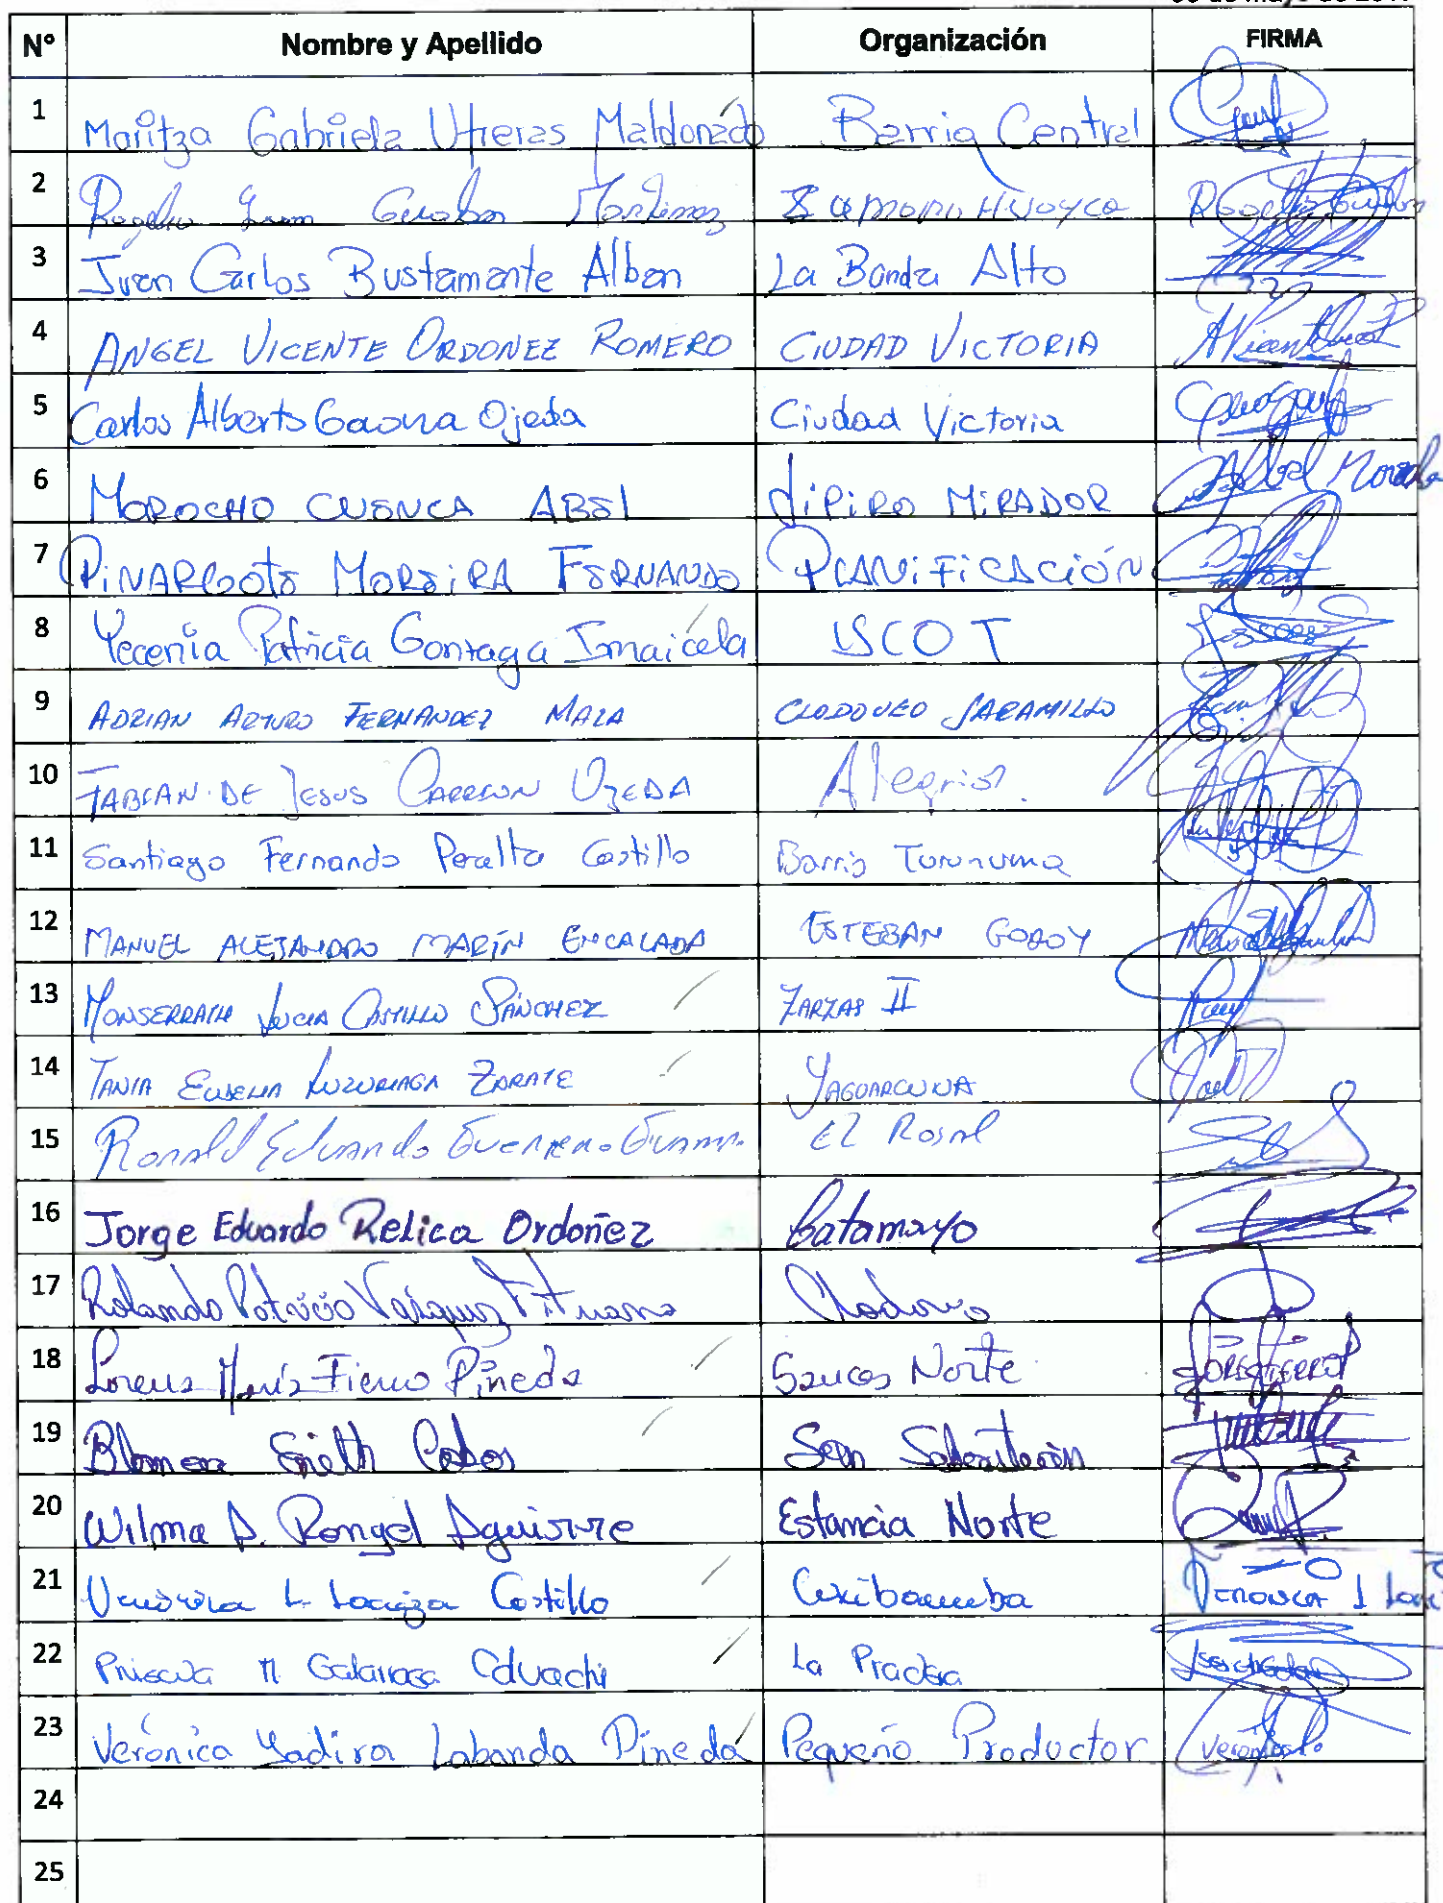 Nº Nombre y Apellido Organización FIRMA
1 Maritza Gabriela Utreras Maldonado Barrio Central
2 Rogelio Martinez Zamora Huayco
3 Juan Carlos Bustamante Alban La Banda Alto
4 ANGEL VICENTE ORDONEZ ROMERO CIUDAD VICTORIA
5 Carlos Alberto Gaona Ojeda Ciudad Victoria
6 MOROCHO CUENCA ABEL JIPIRO MIRADOR Abel Morocho
7 PINARGOTE MOREIRA FERNANDO PLANIFICACIÓN
8 Yecenia Patricia Gonzaga Imaicela ISCOT
9 ADRIAN ARTURO FERNANDEZ MAZA CLODOVEO JARAMILLO
10 FABIAN DE JESUS CARRION OJEDA Alegria
11 Santiago Fernando Peralta Castillo Barrio Turunuma
12 MANUEL ALEJANDRO MARÍN ENCALADA ESTEBAN GODOY
13 MONSERRATH LUCIA CASTILLO SÁNCHEZ ZARZAS II
14 TANIA EUGENIA LUZURIAGA ZARATE YAGUARCUNA
15 Ronald Eduardo Guerrero El Rosal
16 Jorge Eduardo Relica Ordoñez Catamayo
17 Rolando Patricio Vasquez Clodoveo
18 Lorena María Fierro Pineda Sauces Norte
19 Blanca Cobos San
20 Wilma A. Rongel Aguirre Estancia Norte
21 Veronica L. Loaiza Castillo Cuxibamba
22 Priscila M Galarraga La Pradera
23 Verónica Yadira Labanda Pineda Pequeño Productor
24
25